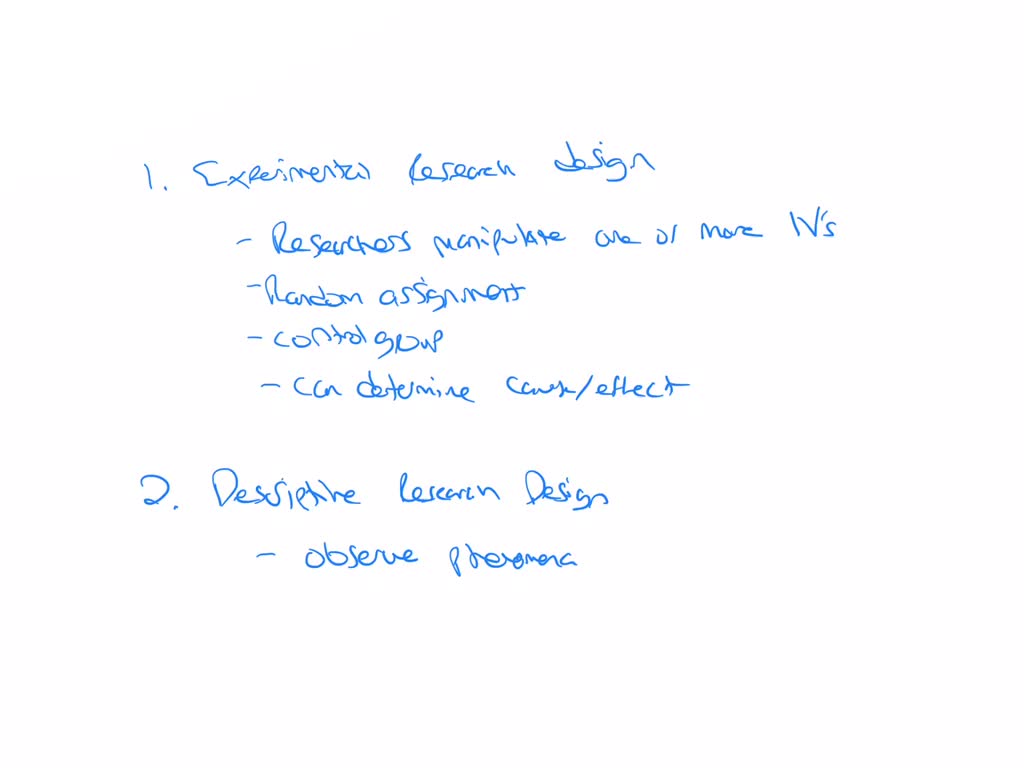 1. Experimental Research design
- Researchers manipulate one or more IV's
- Random assignment
- control group
- can determine cause/effect
2. Descriptive Research Design
- observe phenomena